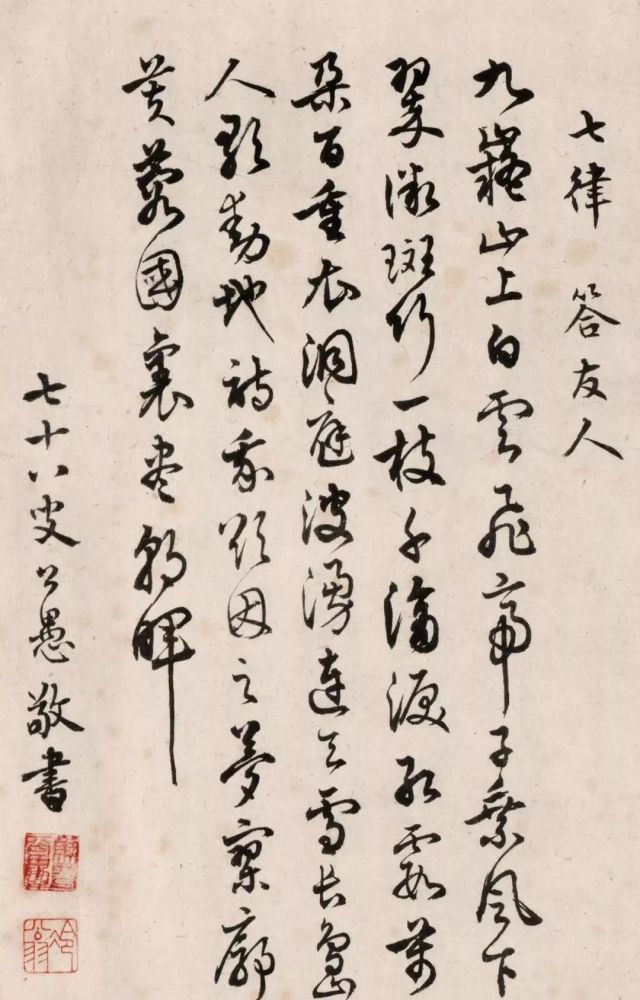 七律 答友人
九嶷山上白雲飛帝子乘風下
翠微斑竹一枝千滴淚紅霞萬
朵百重衣洞庭波湧連天雪長島
人歌動地詩我欲因之夢寥廓
芙蓉國裏尽朝暉
七十八叟公愚敬書
冷翁